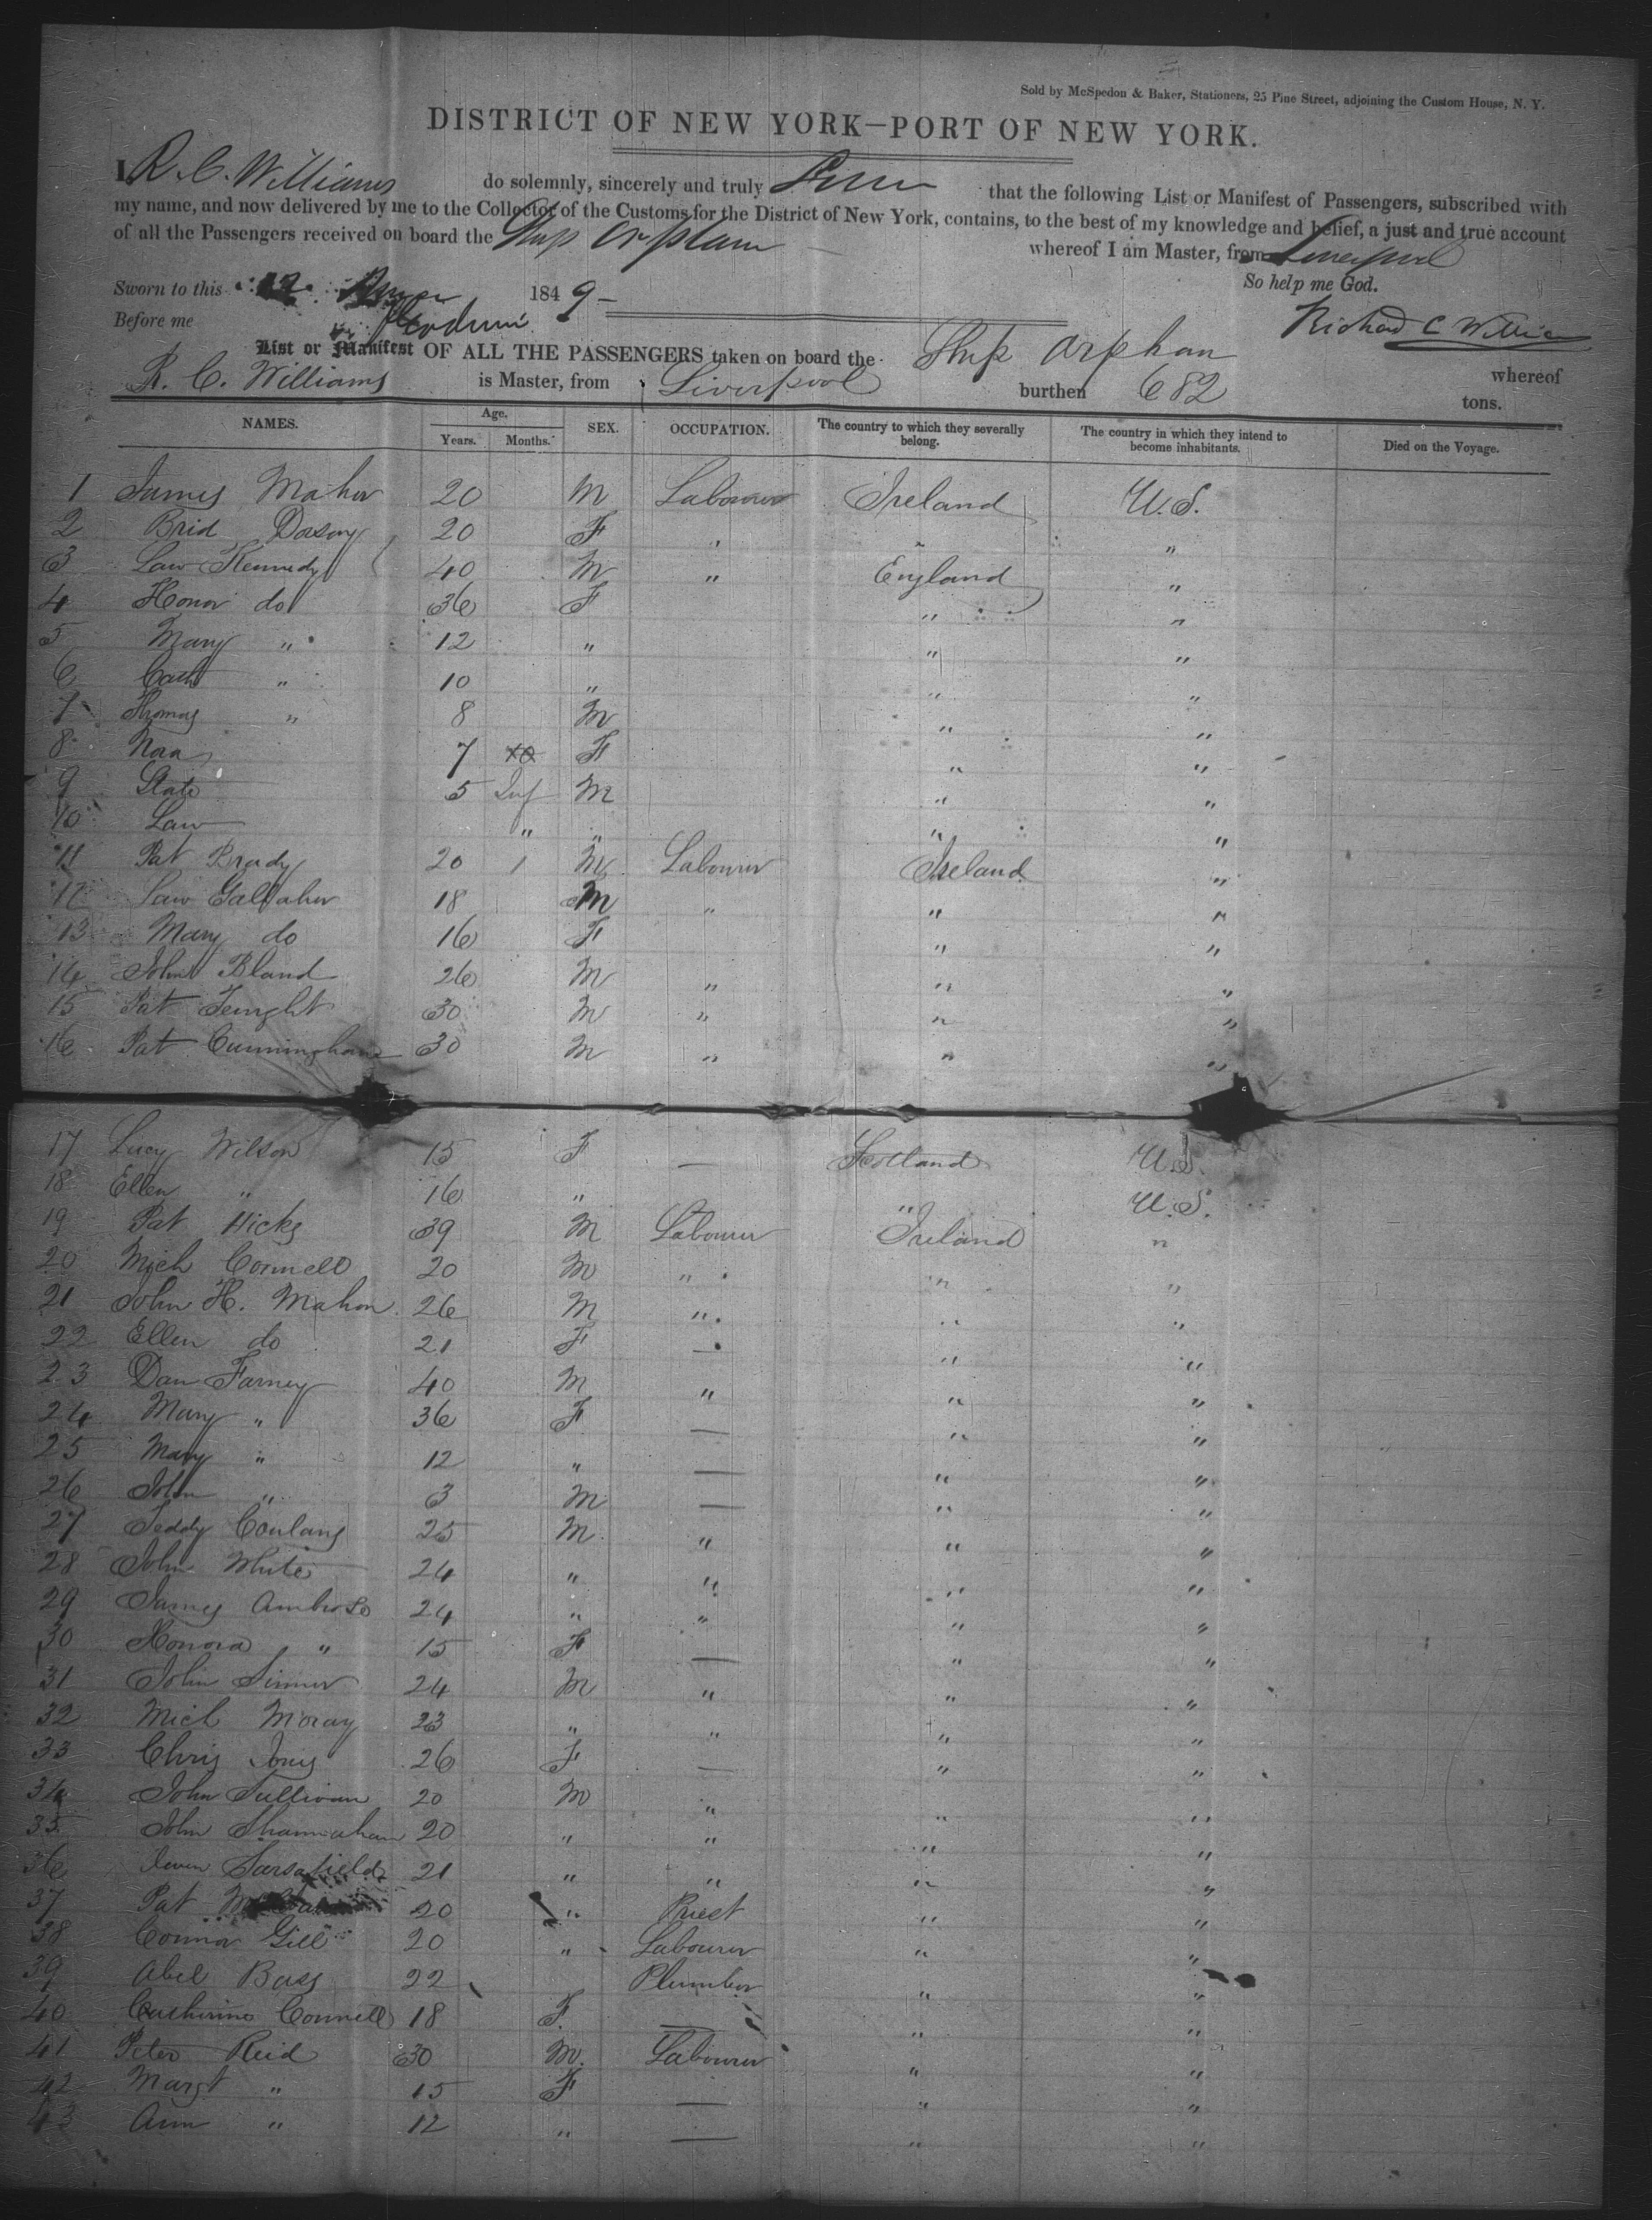 Sold by McSpedon & Baker, Stationers, 25 Pine Street, adjoining the Custom House, N. Y.
DISTRICT OF NEW YORK—PORT OF NEW YORK.
I R. C. Williams do solemnly, sincerely and truly that the following List or Manifest of Passengers, subscribed with
my name, and now delivered by me to the Collector of the Customs for the District of New York, contains, to the best of my knowledge and belief, a just and true account
of all the Passengers received on board the Ship Orphan whereof I am Master, from Liverpool
Sworn to this 1849 So help me God.
Before me Richard C Williams
List or Manifest OF ALL THE PASSENGERS taken on board the Ship Orphan whereof
R. C. Williams is Master, from Liverpool burthen 682 tons.
NAMES. Age. Years. Months. SEX. OCCUPATION. The country to which they severally belong. The country in which they intend to become inhabitants. Died on the Voyage.
1 James Maher 20 M Labourer Ireland U.S.
2 Brid 20 F " " "
3 Law Kennedy 40 M " England "
4 Honor do 36 F " "
5 Mary " 12 " " "
6 Cath " 10 " " "
7 Thomas " 8 M " "
8 Nora 7 F " "
9 5 Inf M " "
10 Law " " " "
11 Pat Brady 20 M Labourer Ireland "
12 Law Gallaher 18 M " " "
13 Mary do 16 F " "
14 John Bland 26 M " " "
15 Pat 30 M " " "
16 Pat Cunningham 30 M " " "
17 Lucy Wilson 15 F — Scotland U.S.
18 Ellen " 16 " " U.S.
19 Pat Hicks 39 M Labourer Ireland "
20 Mich Connell 20 M " " "
21 John H. Mahon 26 M " " "
22 Ellen do 21 F — " "
23 Dan Farney 40 M " " "
24 Mary " 36 F — " "
25 Mary " 12 " — " "
26 John " 3 M — " "
27 Teddy 25 M " " "
28 John White 24 " " " "
29 James Ambrose 24 " " " "
30 Honora " 15 F — " "
31 John 24 M " " "
32 Mich Moray 23 " " " "
33 Chris 26 F — " "
34 John Sullivan 20 M " " "
35 John Shannahan 20 " " " "
36 Sarsafield 21 " " " "
37 Pat 20 " Priest " "
38 Connor Gill 20 " Labourer " "
39 Abel Bass 22 Plumber " "
40 Catherine Connell 18 F. — " "
41 Peter Reid 30 M. Labourer " "
42 Margt " 15 F — " "
43 Ann " 12 " — " "